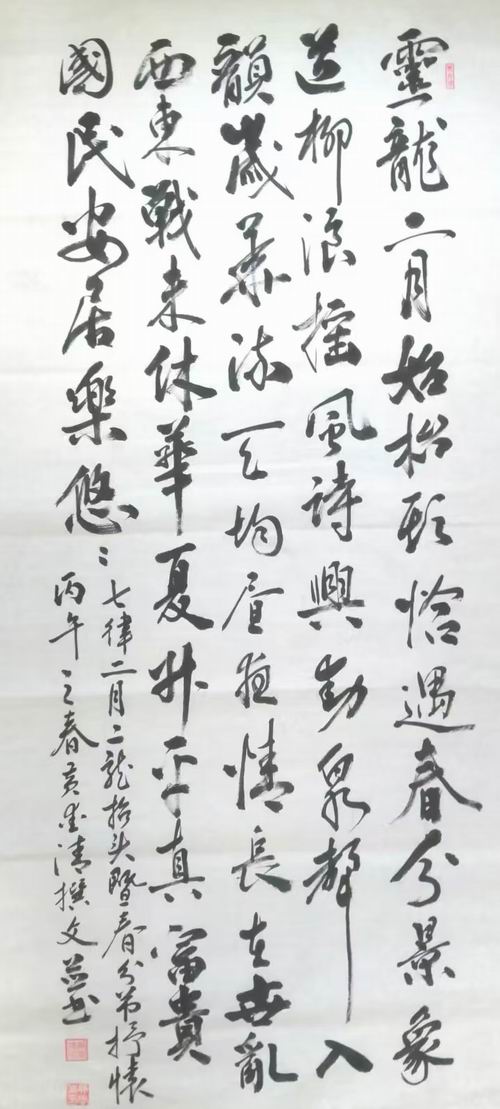 靈龍二月始抬頭恰遇春分景象
遒柳浪摇風詩興動泉聲入
韻歲華流天均晝夜情長在世亂
西東戰未休華夏升平真富貴
國民安居樂悠〻
七律二月二龍抬头暨春分节抒懷
丙午之春黄清撰文並书